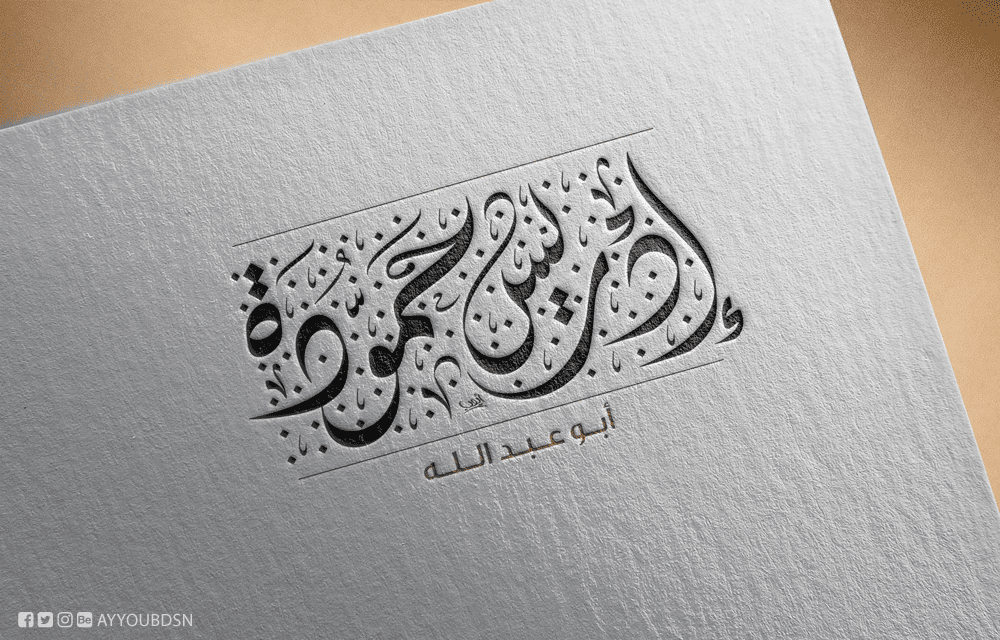 إدريس حمودة
أبو عبد الله
AYYOUBDSN